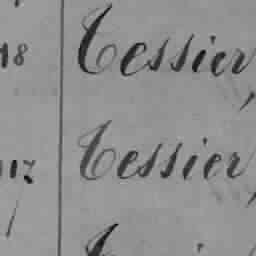 18 Tessier,
117 Tessier,